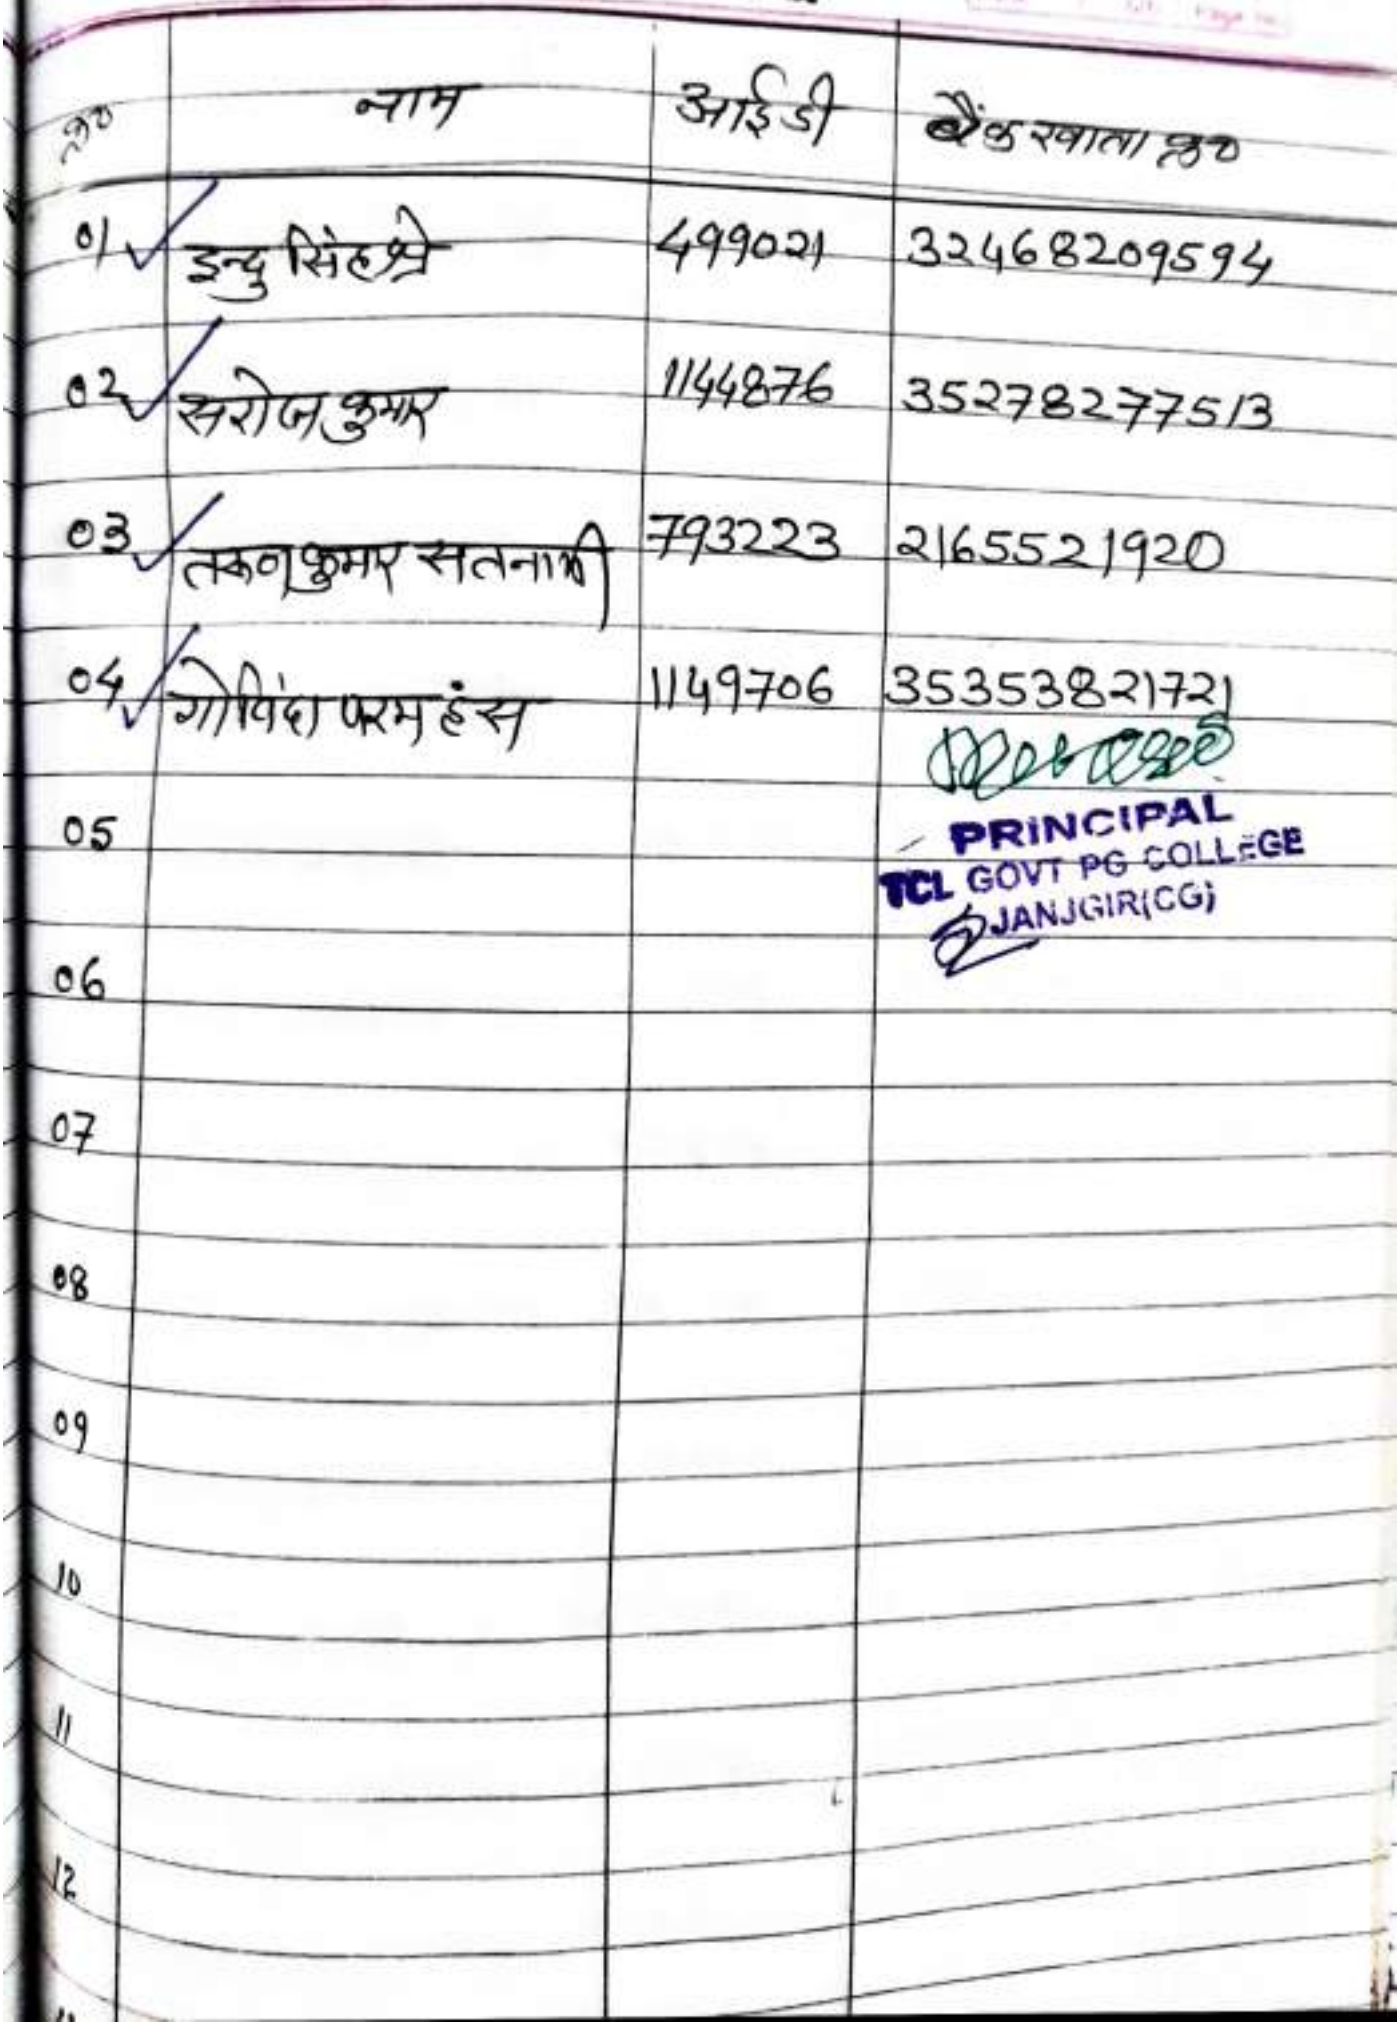 क्र० नाम आईडी बैंक खाता क्र०
01 इन्दु सिंह श्रे 499021 32468209594
02 सरोज कुमार 1144876 35278277513
03 तरुण कुमार सतनामी 793223 2165521920
04 गोविंदा परम हंस 1149706 35353821721
05
PRINCIPAL
TCL GOVT PG COLLEGE
JANJGIR(CG)
06
07
08
09
10
11
12